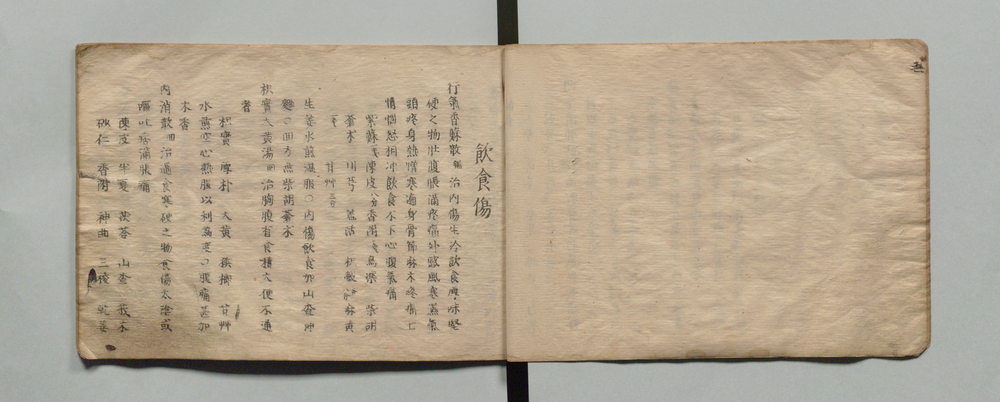 飲食傷
行氣香蘇散 治內傷生冷飲食厚味堅
硬之物肚腹脹滿疼痛外感風寒濕氣
頭疼身熱憎寒遍身骨節麻木疼痛七
情惱怒相冲飲食不下心腹氣痛
紫蘇 陳皮 香附 烏藥 柴胡
蒼朮 川芎 羌活 枳殼 麻黃
甘艸
生姜水煎溫服○內傷飲食加山查神
麯○ 柴胡蒼朮
枳實大黃湯 治胸腹有食積大便不通
者
枳實 厚朴 大黃 檳榔 甘艸
水煎空心熱服以利為度○腹痛甚加
木香
內消散 治過食寒硬之物食傷太陰或
嘔吐痞滿脹痛
陳皮 半夏 茯苓 山查 莪朮
砂仁 香附 神曲 三稜 乾姜